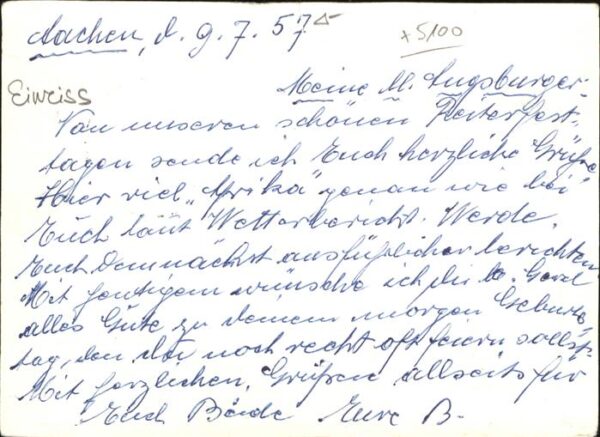 Aachen, d. 9.7.57
+5100
Einweiss
Meine lb. Augsburger.
Von unseren schönen Reiterfest-
tagen sende ich Euch herzliche Grüße
Hier viel „Afrika" genau wie bei
Euch laut Wetterbericht. Werde
Euch demnächst ausführlicher berichten
Mit heutigem wünsche ich dir lb.
alles Gute zu deinem morgen Geburts-
tag, den du noch recht oft feiern sollst.
Mit herzlichen Grüßen allseits für
Euch Beide Eure B.